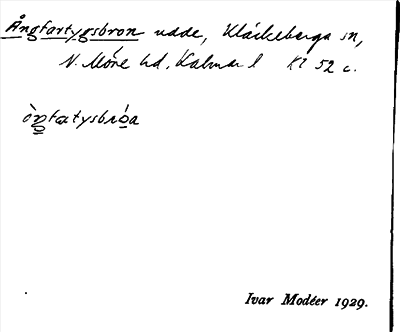 Ångfartygsbron udde, Kläckeberga sn,
N. Möre hd, Kalmar l Kl 52 c.
ò̀ŋfatysbró̱a
Ivar Modéer 1929.